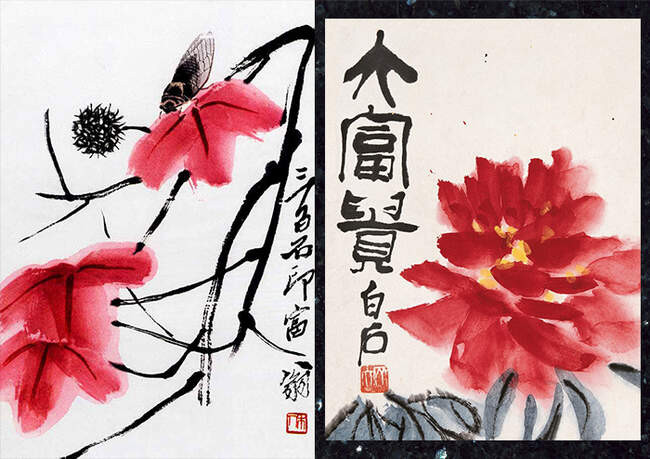 三百石印富翁
大富貴
白石